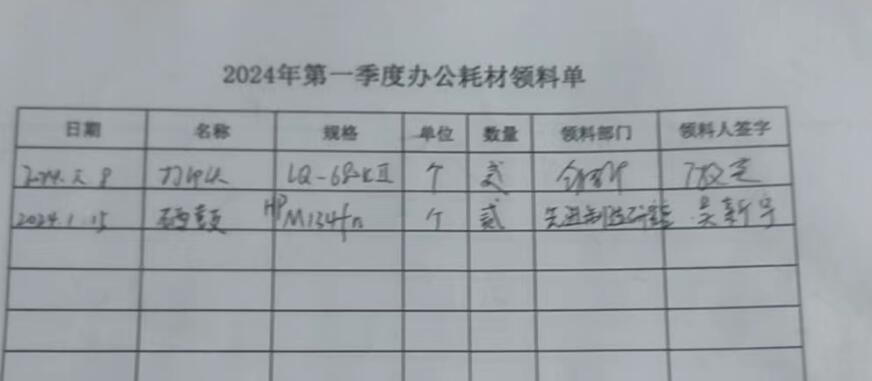 2024年第一季度办公耗材领料单
日期 名称 规格 单位 数量 领料部门 领料人签字
LQ-680KII 个 贰
2024.1.15 硒鼓 HP M134fn 个 贰 先进制造 吴新宇